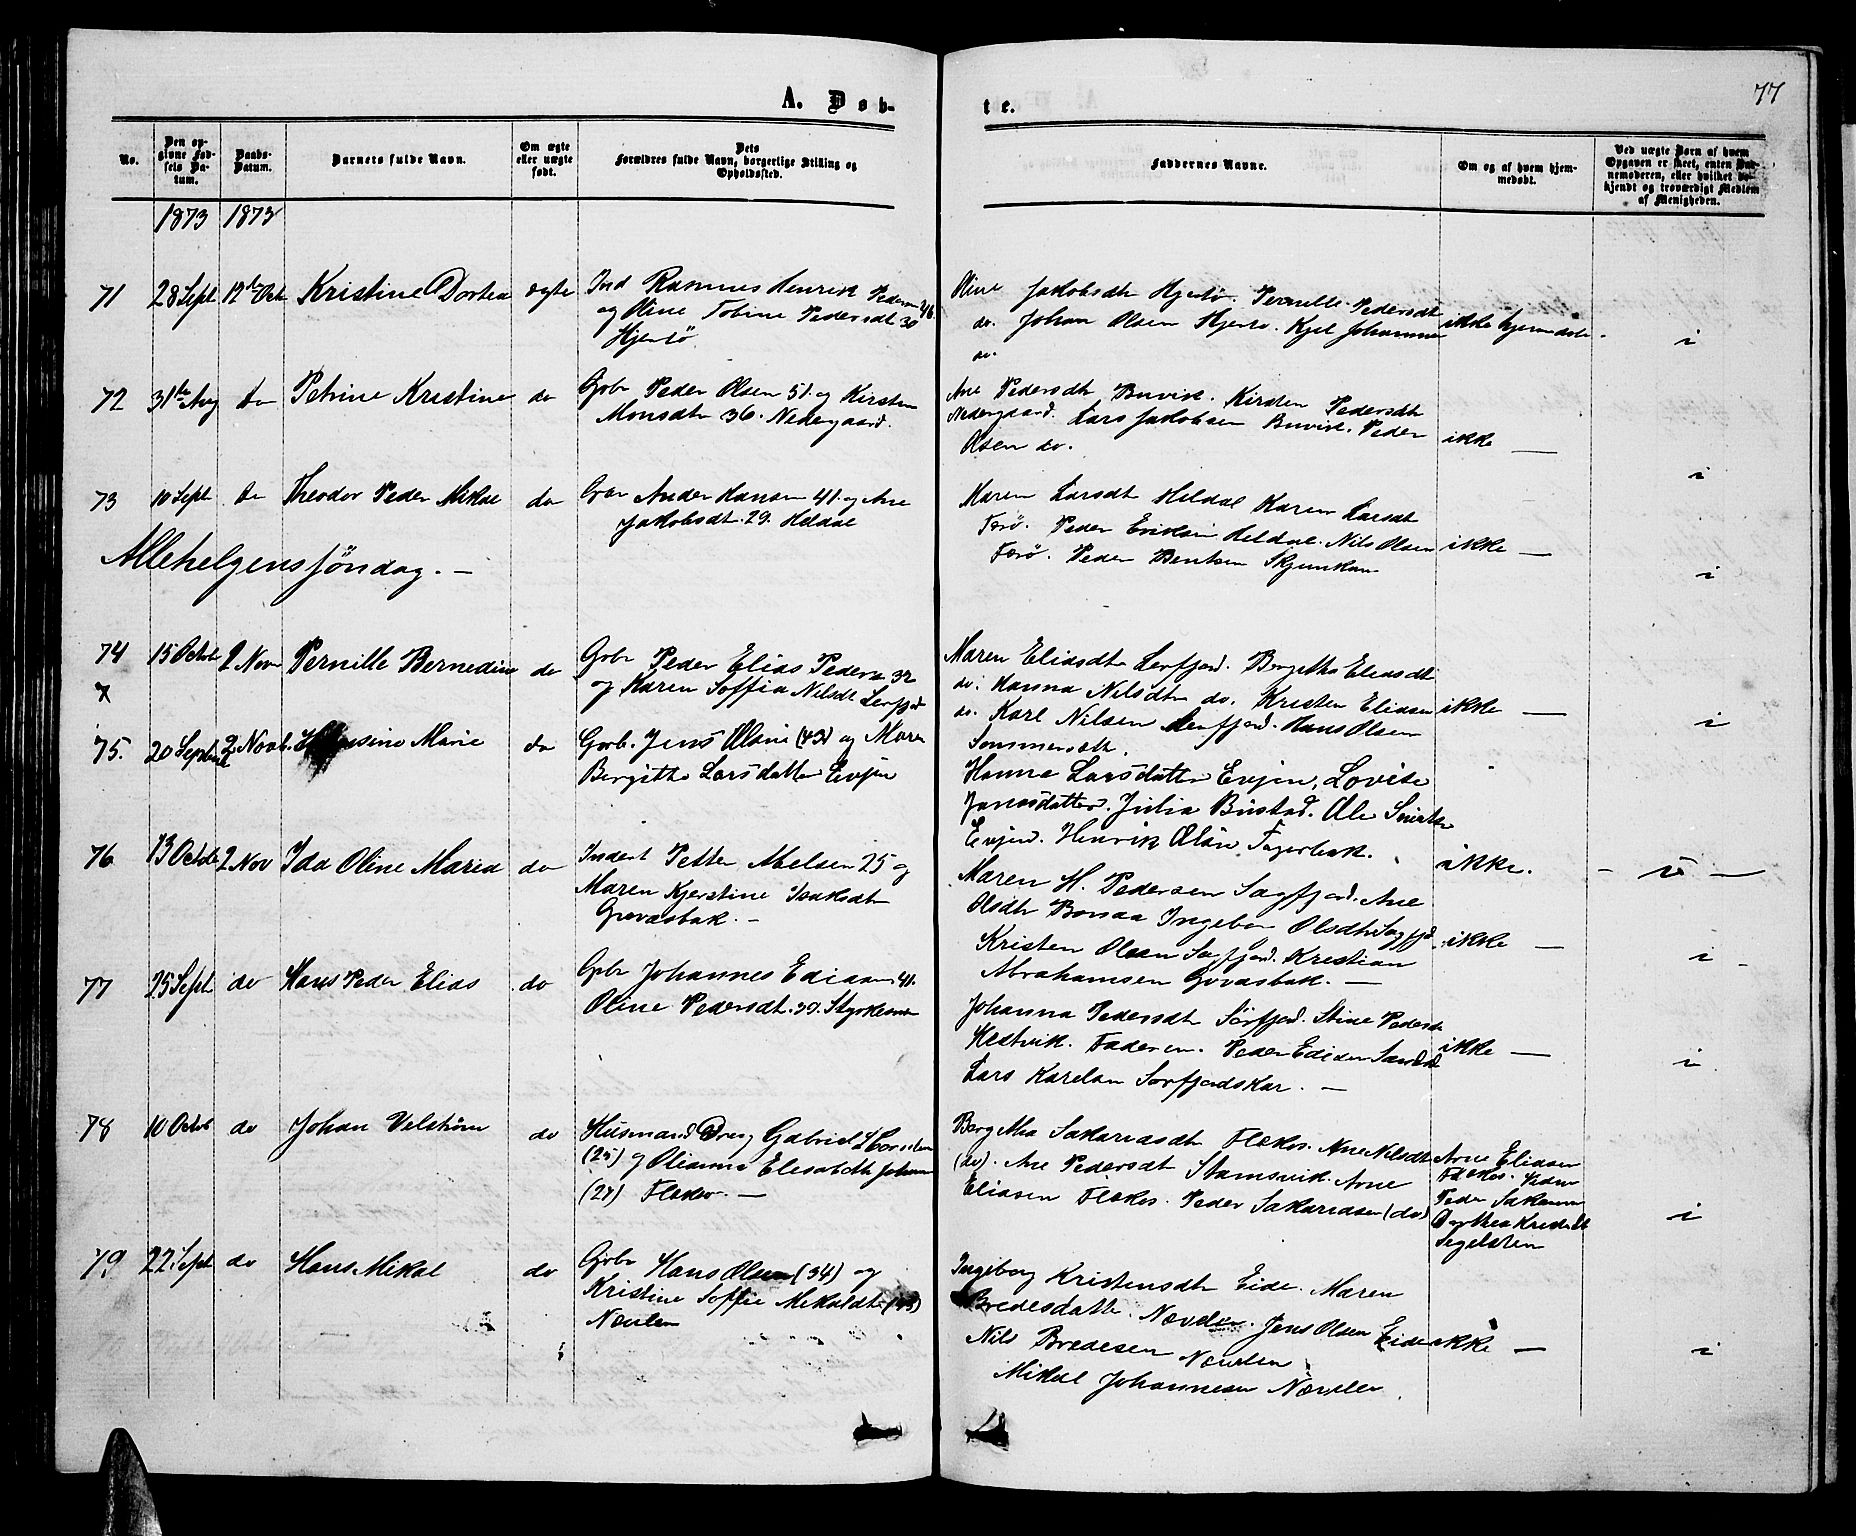 77
A. Døb-
te.
No.
Den op-
givne Fød-
sels Da-
tum.
Daabs-
Datum.
Barnets fulde Navn.
Om ægte
eller uægte
født.
Dets
Forældres fulde Navn, borgerlige Stilling og
Opholdssted.
Faddernes Navne.
Om og af hvem hjem-
medøbt.
Ved uægte Børn af hvem
Opgaven er skeet, enten Bar-
nemoderen, eller hvilket be-
kjendt og troværdigt Medlem
af Menigheden.
1873 1873
71 28 Sept 12te Oct Kristine Dortea ægte
Ind Rasmus Henrik Pedersen 46
og Oline Tobine Pedersdt 30
Hjertø
Oline Jakobsdt Hjertø. Pernille Pedersdt
do. Johan Olsen Hjertø. Kjel Johannesen
do.
ikke hjemdøbt.
i
72 31te Aug do Petrine Kristine do
Gbr Peder Olsen 51. og Kirsten
Monsdtr 36. Nedregaard.
Ane Pedersdt Buvik. Kirsten Pedersdt
Nedregaard. Lars Jakobsen Buvik. Peder
Olsen do.
ikke —
i
73 10 Sept do Theodor Peder Mikal do
Gbr Ander Hansen 41. og Ane
Jakobsdt. 29. Heldal
Maren Larsdt Heldal Karen Larsdt
Færø. Peder Eriksen Heldal. Nils Olsen
Færø. Peder Bentsen
ikke —
i
Allehelgenssøndag. —
74 15 Octob 2 Nov Pernille Bernedine do
x
Gbr Peder Elias Peders 32
og Karen Soffia Nilsdt Lerfjord
Maren Eliasdt Lerfjord. Bergitha Eliasdt
do. Hanna Nilsdt do. Kristen Eliasen
do. Karl Nilsen Lerfjord. Hans Olsen
Sommerseth.
ikke —
i
75. 20 Septbr 2 Novb. Marie do
Gaarb. Jens Olsen (43) og Maren
Bergitte Larsdatter Evjen
Hanna Larsdatter Evjen, Lovise
Jonasdatter. Julia Bustad. Ole
Evjen. Henrik Olsen Fagerbak.
ikke.
- i —
76 13 Octob 2 Nov Ida Oline Maria do
Inderst Petter Abelsen 25 og
Maren Kjerstine Isaksdt
Govasbak. —
Maren H. Pedersen Sagfjord. Ane
Olsdt Bonaa Ingebor Olsdt Sagfjd
Kristen Olsen Sagfjord. Krestian
Abrahamsen Govasbak. —
ikke —
i -
77 25 Sept do Hans Peder Elias do
Gbr Johannes Ediasen 41.
Oline Pedersdt. 39. Styrkesnes
Johanna Pedersdt Sørfjord. Stine Pedersdt
Hestvik. Faderen. Peder Ediasen
Lars Karelsen Sørfjordskar. —
ikke —
i
78 10 Octob do Johan Velstrøm do
Husmand Dreng Gabriel
(25) og Olianna Elisabeth Johans
(27) Flækes. —
Bergitha Sakariasdt Flækes. Ane Nilsdt
(do). Ane Pedersdt Stamsvik. Arne
Eliasen Flækes. Peder Sakariasen (do)
Arne Eliasen
Flækes. Viden
Peder Sakarias
Dorthea
Segelsten
i
79 22 Sept do Hans Mikal do
Gbr Hans Olsen (34) og
Kristine Soffie Mekaldt
Nævelen
Ingeborg Kristensdt Eide. Maren
Bredesdatter. Nævelen. Jens Olsen Eide
Nils Bredesen Nævelen
Mikal Johannesen Nævelen.
ikke —
i